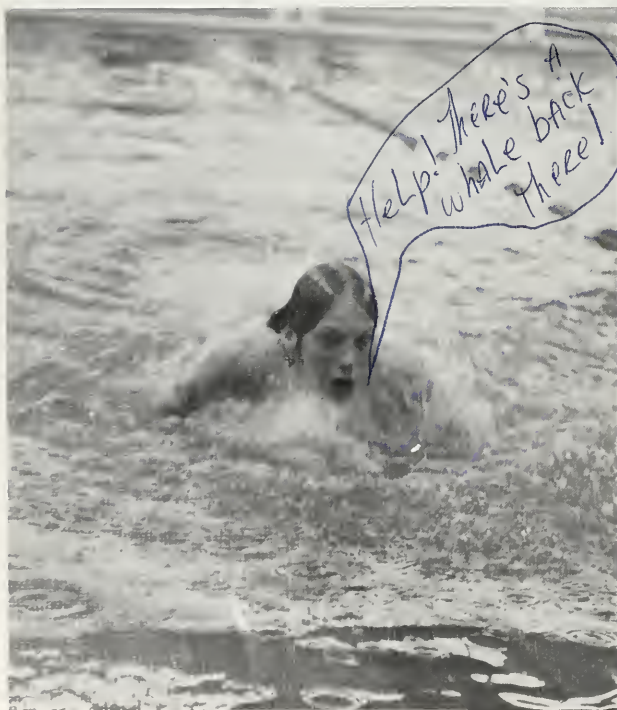 Help! There's A
whale back
there!